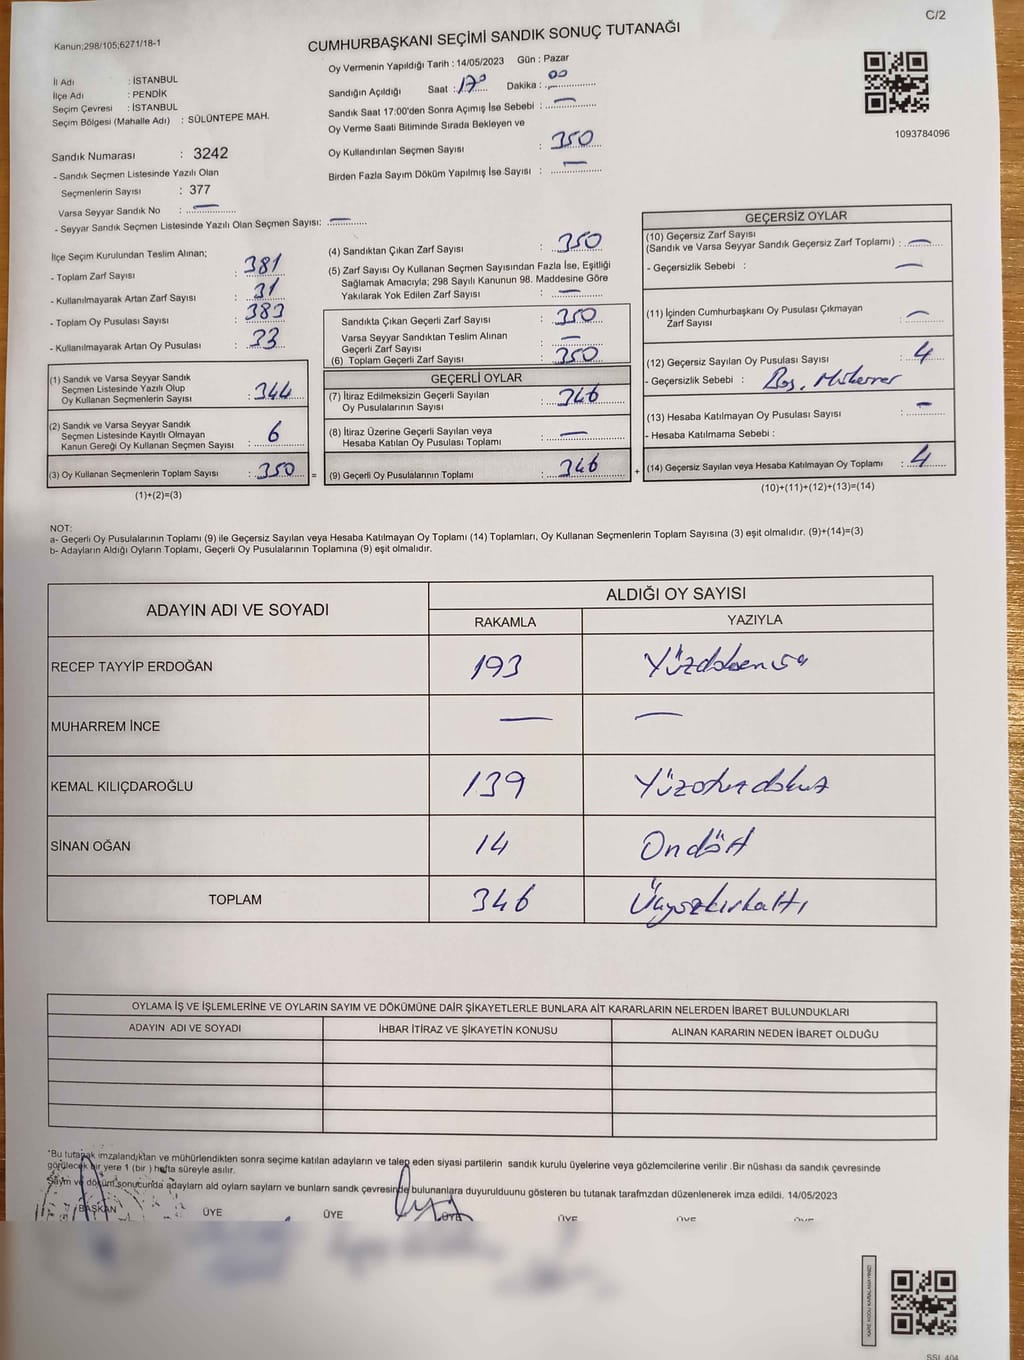 C/2
Kanun;298/105;6271/18-1
CUMHURBAŞKANI SEÇİMİ SANDIK SONUÇ TUTANAĞI
Oy Vermenin Yapıldığı Tarih : 14/05/2023 Gün : Pazar
İl Adı : İSTANBUL
İlçe Adı : PENDİK
Seçim Çevresi : İSTANBUL
Seçim Bölgesi (Mahalle Adı) : SÜLÜNTEPE MAH.
Sandığın Açıldığı Saat : 17 Dakika : 00
Sandık Saat 17:00'den Sonra Açımış İse Sebebi : —
Oy Verme Saati Bitiminde Sırada Bekleyen ve
Oy Kullandırılan Seçmen Sayısı : 350
Birden Fazla Sayım Döküm Yapılmış İse Sayısı : —
1093784096
Sandık Numarası : 3242
- Sandık Seçmen Listesinde Yazılı Olan
Seçmenlerin Sayısı : 377
Varsa Seyyar Sandık No : —
- Seyyar Sandık Seçmen Listesinde Yazılı Olan Seçmen Sayısı: —
İlçe Seçim Kurulundan Teslim Alınan;
- Toplam Zarf Sayısı : 381
- Kullanılmayarak Artan Zarf Sayısı : 31
- Toplam Oy Pusulası Sayısı : 383
- Kullanılmayarak Artan Oy Pusulası : 33
(1) Sandık ve Varsa Seyyar Sandık
Seçmen Listesinde Yazılı Olup
Oy Kullanan Seçmenlerin Sayısı : 344
(2) Sandık ve Varsa Seyyar Sandık
Seçmen Listesinde Kayıtlı Olmayan
Kanun Gereği Oy Kullanan Seçmen Sayısı : 6
(3) Oy Kullanan Seçmenlerin Toplam Sayısı : 350 =
(1)+(2)=(3)
(4) Sandıktan Çıkan Zarf Sayısı : 350
(5) Zarf Sayısı Oy Kullanan Seçmen Sayısından Fazla İse, Eşitliği
Sağlamak Amacıyla; 298 Sayılı Kanunun 98. Maddesine Göre
Yakılarak Yok Edilen Zarf Sayısı : —
Sandıkta Çıkan Geçerli Zarf Sayısı : 350
Varsa Seyyar Sandıktan Teslim Alınan
Geçerli Zarf Sayısı : —
(6) Toplam Geçerli Zarf Sayısı : 350
GEÇERLİ OYLAR
(7) İtiraz Edilmeksizin Geçerli Sayılan
Oy Pusulalarının Sayısı : 346
(8) İtiraz Üzerine Geçerli Sayılan veya
Hesaba Katılan Oy Pusulası Toplamı : —
(9) Geçerli Oy Pusulalarının Toplamı : 346 +
GEÇERSİZ OYLAR
(10) Geçersiz Zarf Sayısı
(Sandık ve Varsa Seyyar Sandık Geçersiz Zarf Toplamı) : —
- Geçersizlik Sebebi : —
(11) İçinden Cumhurbaşkanı Oy Pusulası Çıkmayan
Zarf Sayısı : —
(12) Geçersiz Sayılan Oy Pusulası Sayısı : 4
- Geçersizlik Sebebi : Boş,
(13) Hesaba Katılmayan Oy Pusulası Sayısı : —
- Hesaba Katılmama Sebebi :
(14) Geçersiz Sayılan veya Hesaba Katılmayan Oy Toplamı : 4
(10)+(11)+(12)+(13)=(14)
NOT:
a- Geçerli Oy Pusulalarının Toplamı (9) ile Geçersiz Sayılan veya Hesaba Katılmayan Oy Toplamı (14) Toplamları, Oy Kullanan Seçmenlerin Toplam Sayısına (3) eşit olmalıdır. (9)+(14)=(3)
b- Adayların Aldığı Oyların Toplamı, Geçerli Oy Pusulalarının Toplamına (9) eşit olmalıdır.
ADAYIN ADI VE SOYADI
ALDIĞI OY SAYISI
RAKAMLA YAZIYLA
RECEP TAYYİP ERDOĞAN 193
MUHARREM İNCE — —
KEMAL KILIÇDAROĞLU 139 Yüzotuzdokuz
SİNAN OĞAN 14 Ondört
TOPLAM 346 Üçyüzkırkaltı
OYLAMA İŞ VE İŞLEMLERİNE VE OYLARIN SAYIM VE DÖKÜMÜNE DAİR ŞİKAYETLERLE BUNLARA AİT KARARLARIN NELERDEN İBARET BULUNDUKLARI
ADAYIN ADI VE SOYADI İHBAR İTİRAZ VE ŞİKAYETİN KONUSU ALINAN KARARIN NEDEN İBARET OLDUĞU
*Bu tutanak imzalandıktan ve mühürlendikten sonra seçime katılan adayların ve talep eden siyasi partilerin sandık kurulu üyelerine veya gözlemcilerine verilir .Bir nüshası da sandık çevresinde
görülecek bir yere 1 (bir ) hafta süreyle asılır.
Sayım ve döküm sonucunda adayların ald oyların sayların ve bunların sandk çevresinde bulunanlara duyurulduunu gösteren bu tutanak tarafmzdan düzenlenerek imza edildi. 14/05/2023
BAŞKAN ÜYE ÜYE ÜYE ÜYE ÜYE ÜYE
SSL 404